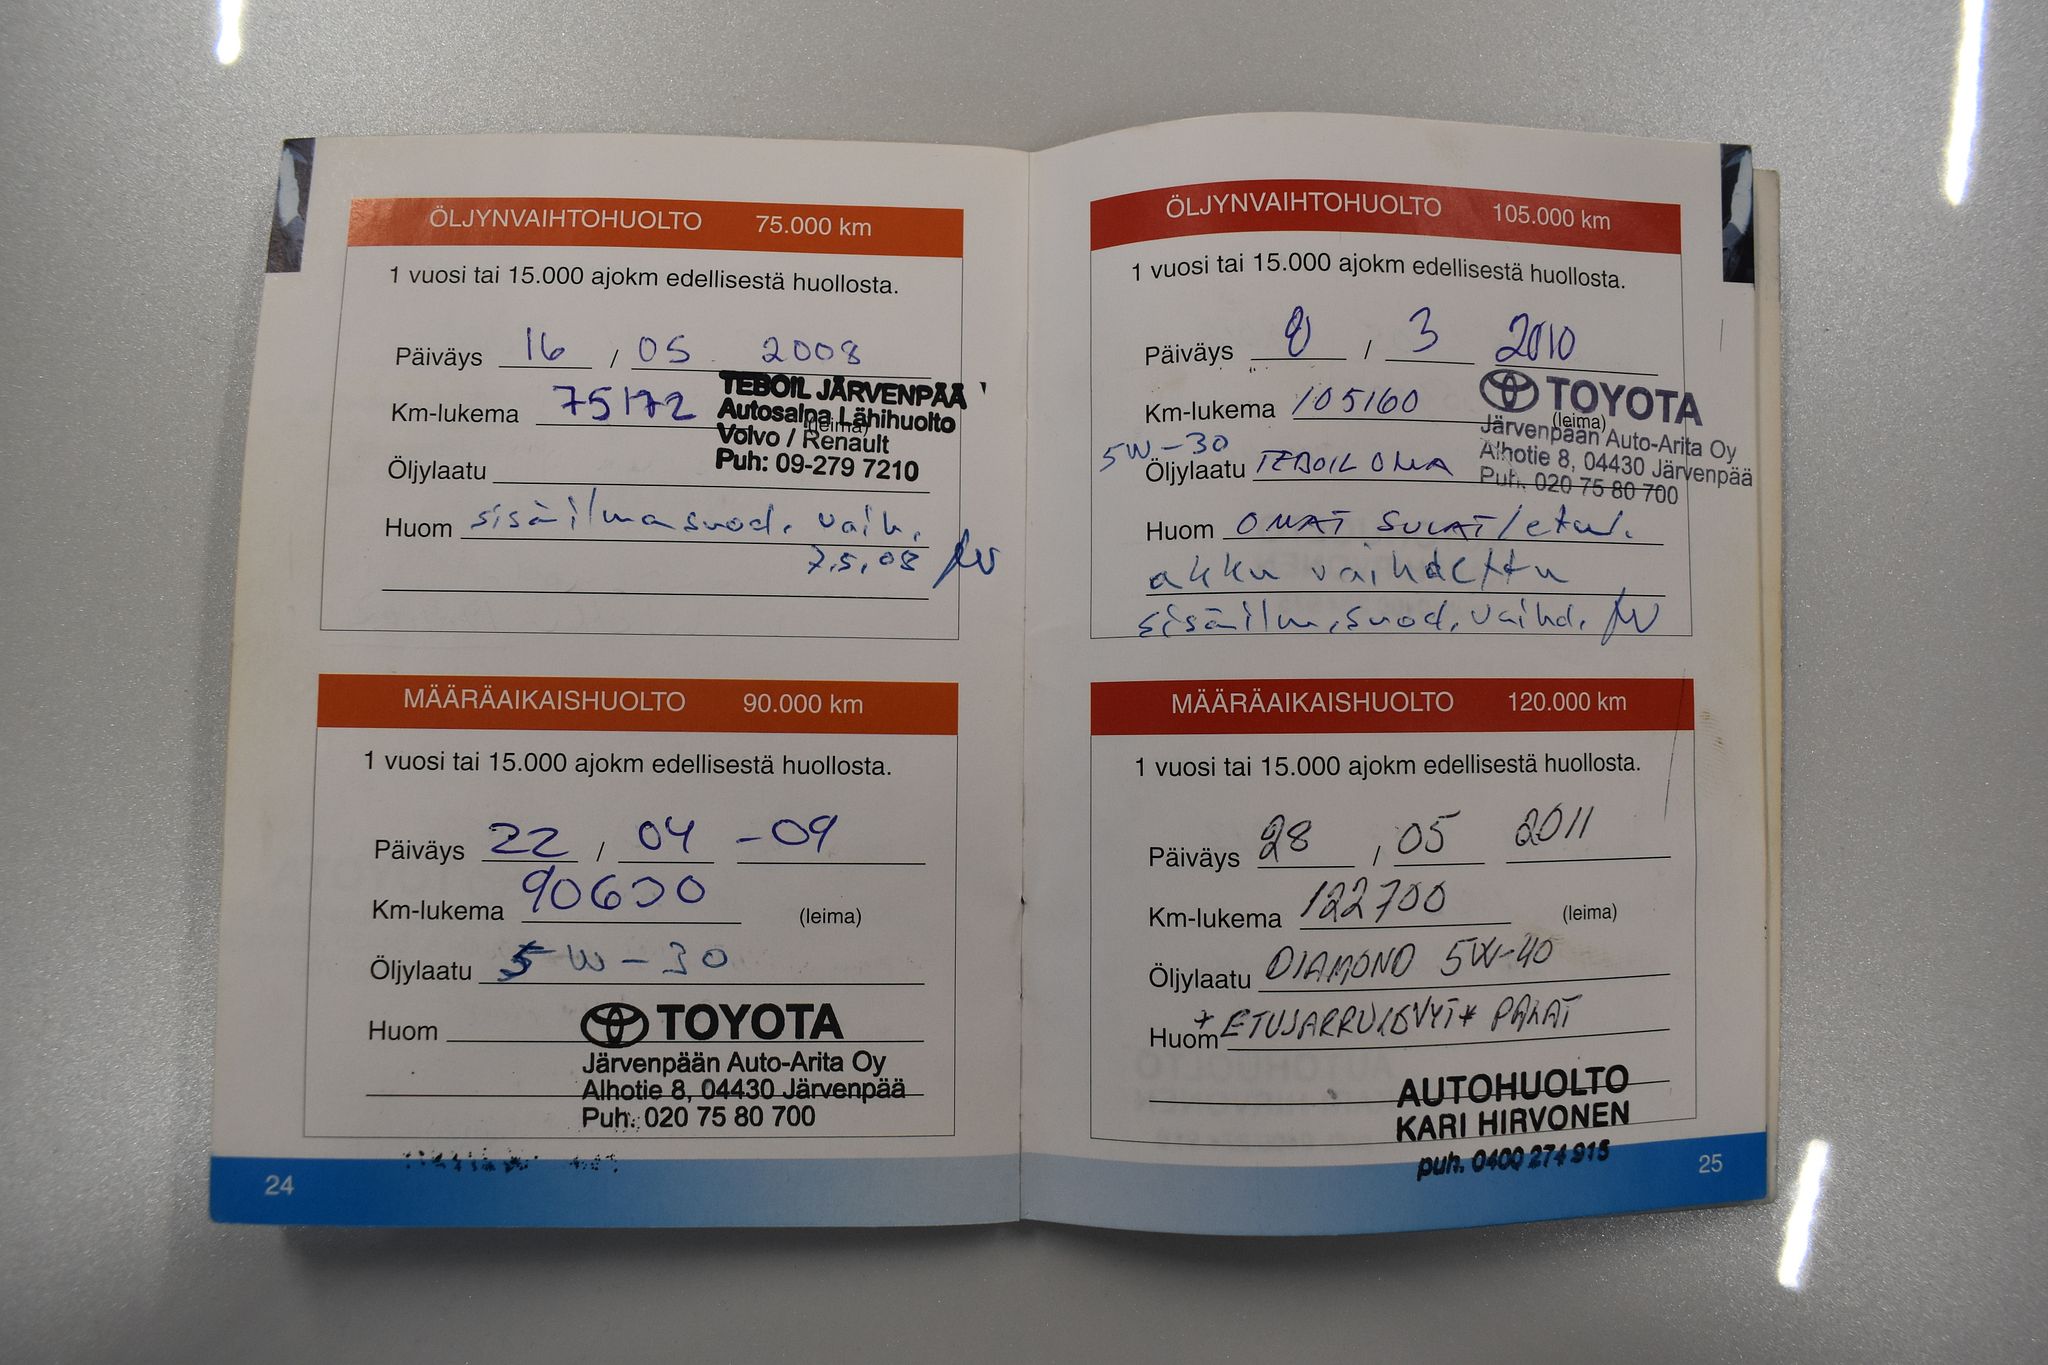 ÖLJYNVAIHTOHUOLTO 75.000 km
1 vuosi tai 15.000 ajokm edellisestä huollosta.
Päiväys 16 / 05 2008
Km-lukema 75172 (leima)
TEBOIL JÄRVENPÄÄ
Autosalpa Lähihuolto
Volvo / Renault
Puh: 09-279 7210
Öljylaatu
Huom sisäilmasuod. vaih.
7.5.08
MÄÄRÄAIKAISHUOLTO 90.000 km
1 vuosi tai 15.000 ajokm edellisestä huollosta.
Päiväys 22 / 04 -09
Km-lukema 90600 (leima)
Öljylaatu 5W-30
Huom
TOYOTA
Järvenpään Auto-Arita Oy
Alhotie 8, 04430 Järvenpää
Puh. 020 75 80 700
24
ÖLJYNVAIHTOHUOLTO 105.000 km
1 vuosi tai 15.000 ajokm edellisestä huollosta.
Päiväys 8 / 3 2010
Km-lukema 105160 (leima)
TOYOTA
Järvenpään Auto-Arita Oy
Alhotie 8, 04430 Järvenpää
Puh. 020 75 80 700
5W-30
Öljylaatu TEBOIL OMA
Huom OMAT SULAT/etul.
akku vaihdettu
sisäilm.suod.vaihd.
MÄÄRÄAIKAISHUOLTO 120.000 km
1 vuosi tai 15.000 ajokm edellisestä huollosta.
Päiväys 28 / 05 2011
Km-lukema 122700 (leima)
Öljylaatu DIAMOND 5W-40
Huom + ETUJARRULEVYT + PALAT
AUTOHUOLTO
KARI HIRVONEN
puh. 0400 274 915
25